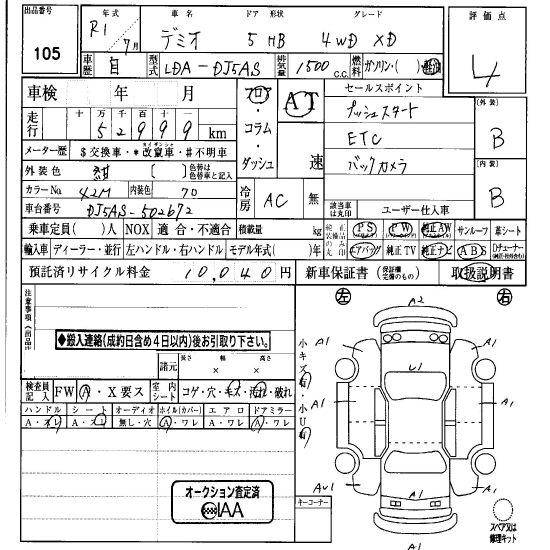 出品番号 年式 車名 ドア 形状 グレード 評価点
105 R1 7月 デミオ 5 HB 4WD XD 4
車歴 自 型式 LDA-DJ5AS 排気量 1500 C.C. 燃料 ガソリン・( )
車検 年 月 フロア・コラム・ダッシュ AT 速 セールスポイント
走行 十万千百十 52999 km プッシュスタート
メーター歴 $交換車・*改竄車・#不明車 ETC
外装色 紺 [ ] 色替は色替車と記入 バックカメラ
カラーNo. 42M 内装色 70 冷房 AC 無 該当車は丸印 ユーザー仕入車
車台番号 DJ5AS-502672
外装 B
内装 B
乗車定員( )人 NOX 適合・不適合 積載量 kg 純正装備品のみ丸印 PS PW 純正AW サンルーフ 革シート
輸入車 ディーラー・並行 左ハンドル・右ハンドル モデル年式( )年 エアバッグ 純正TV 純正ナビ ABS Dチューナー
預託済リサイクル料金 10,040円 新車保証書 (保証欄完備のもの) 取扱説明書
注意事項
◆搬入連絡(成約日含め4日以内)後お引取り下さい。
諸元 長さ × 幅 × 高さ
検査員記入 FW A・X要ス 室内シート コゲ・穴・キズ・汚れ・破れ
ハンドル シート オーディオ ホイル(カバー) エアロ ドアミラー
A・スレ A・スレ 無し・穴 A・ワレ A・ワレ A・ワレ
オークション査定済
IAA
小キズ有・小U有
キーコーナー
左 右
A2
A1 A1
U1
A1 A1
A1
AU1 A1
A1
A1
スペアタイヤ又は修理キット